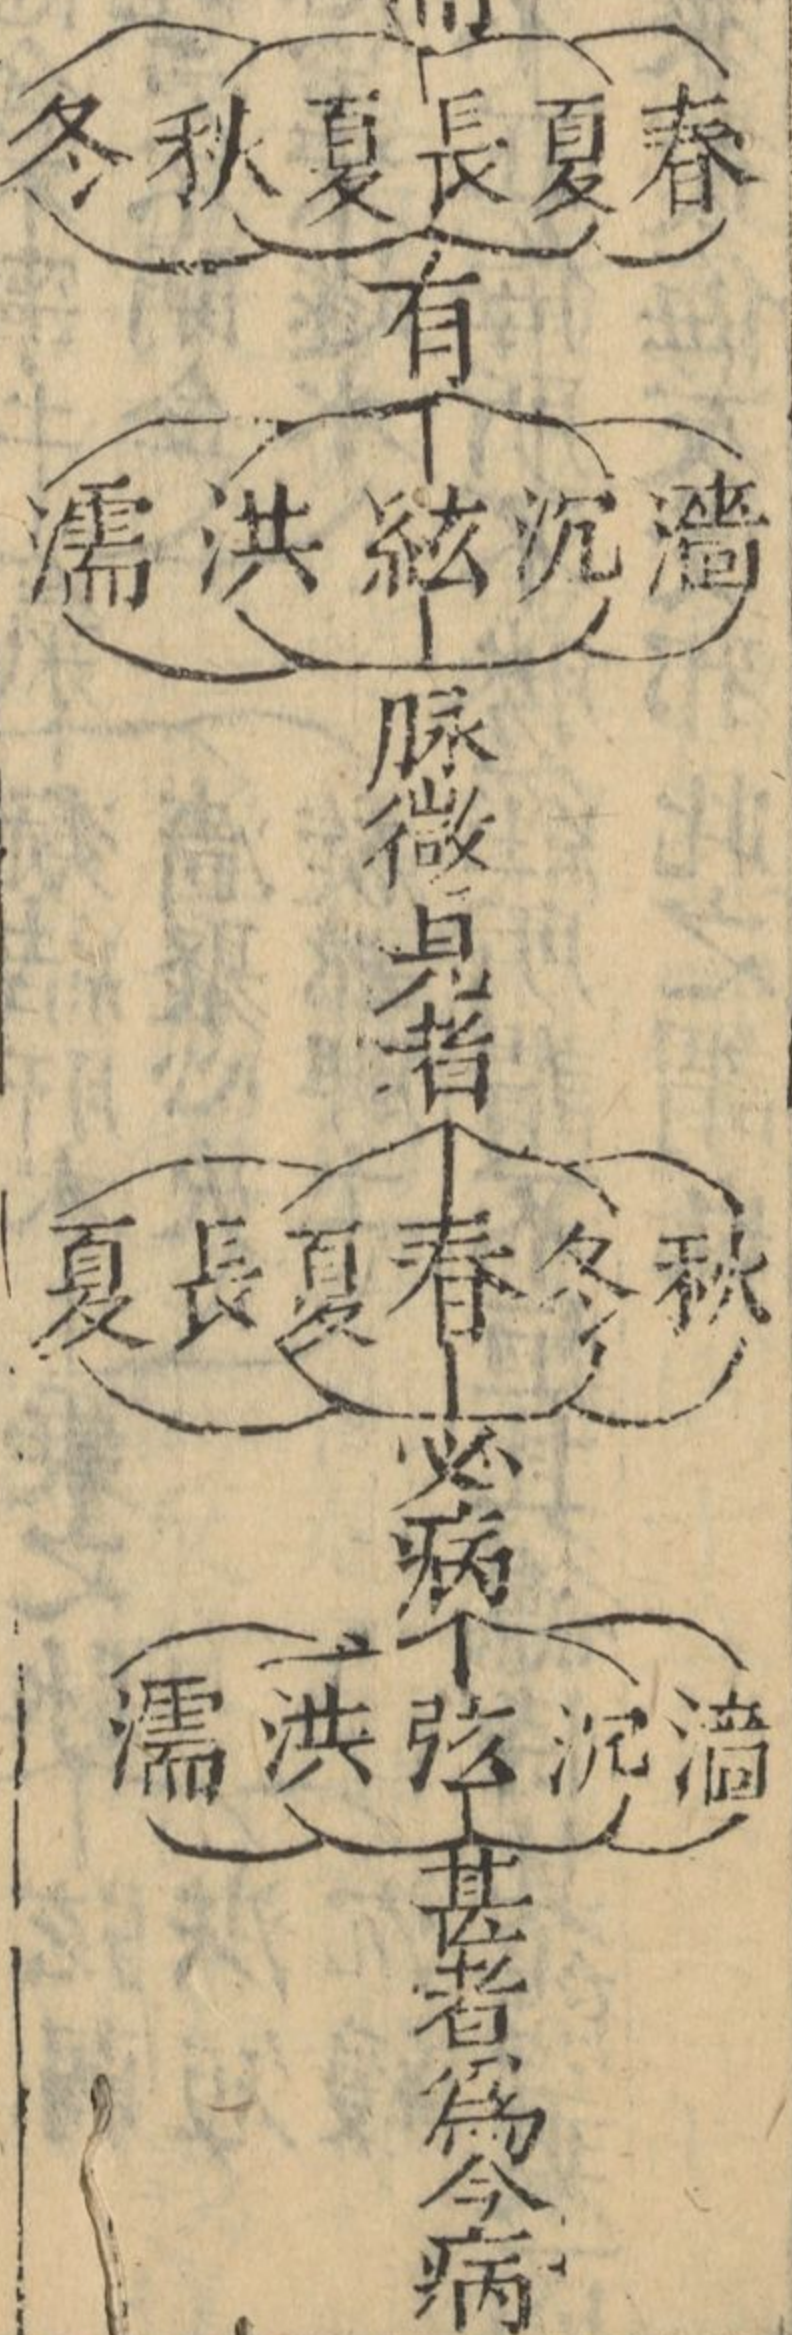 春 夏 長夏 秋 冬
有
濇 沉 絃 洪 濡
脉微見者
秋 冬 春 夏 長夏
必病
濇 沉 弦 洪 濡
甚者爲今病